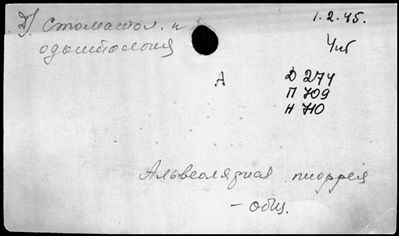 Д) Стоматол. и 1.2.45.
одонтология Чиб
А Д 274
П 709
Н 710
Альвеолярная пиоррея
– общ.